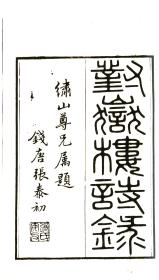 對嶽樓詩錄
繡山尊兄属題
錢唐張泰初